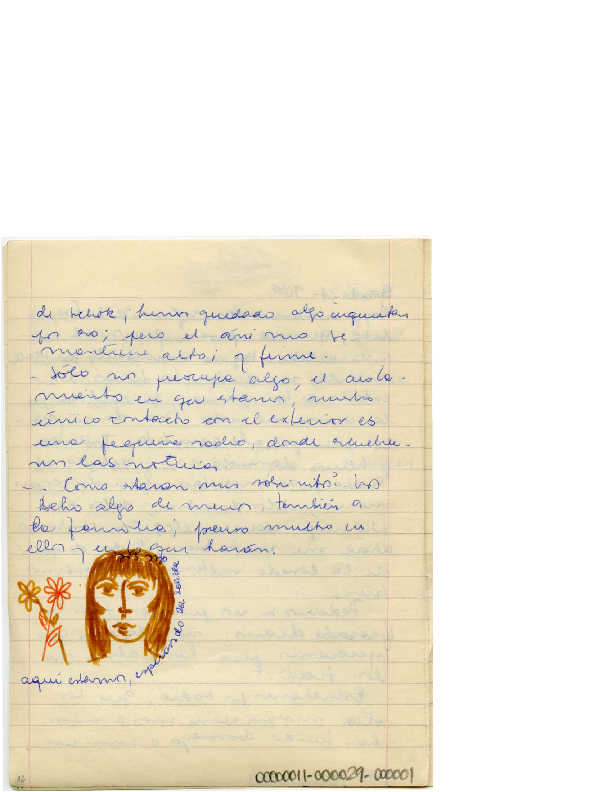 de schok, hemos quedado algo inquietas
por eso; pero el ánimo se
mantiene alto; y firme..
- Sólo nos preocupa algo, el aisla-
miento en que estamos, nuestro
único contacto con el exterior es
una pequeña radio, donde escucha-
mos las noticias
-. Como estaran mis sobrinitos? los
hecho algo de menos, también a
la familia; pienso mucho en
ellos y en lo que harán.
aquí estamos, esperando la salida
12
00000011-000029-000001